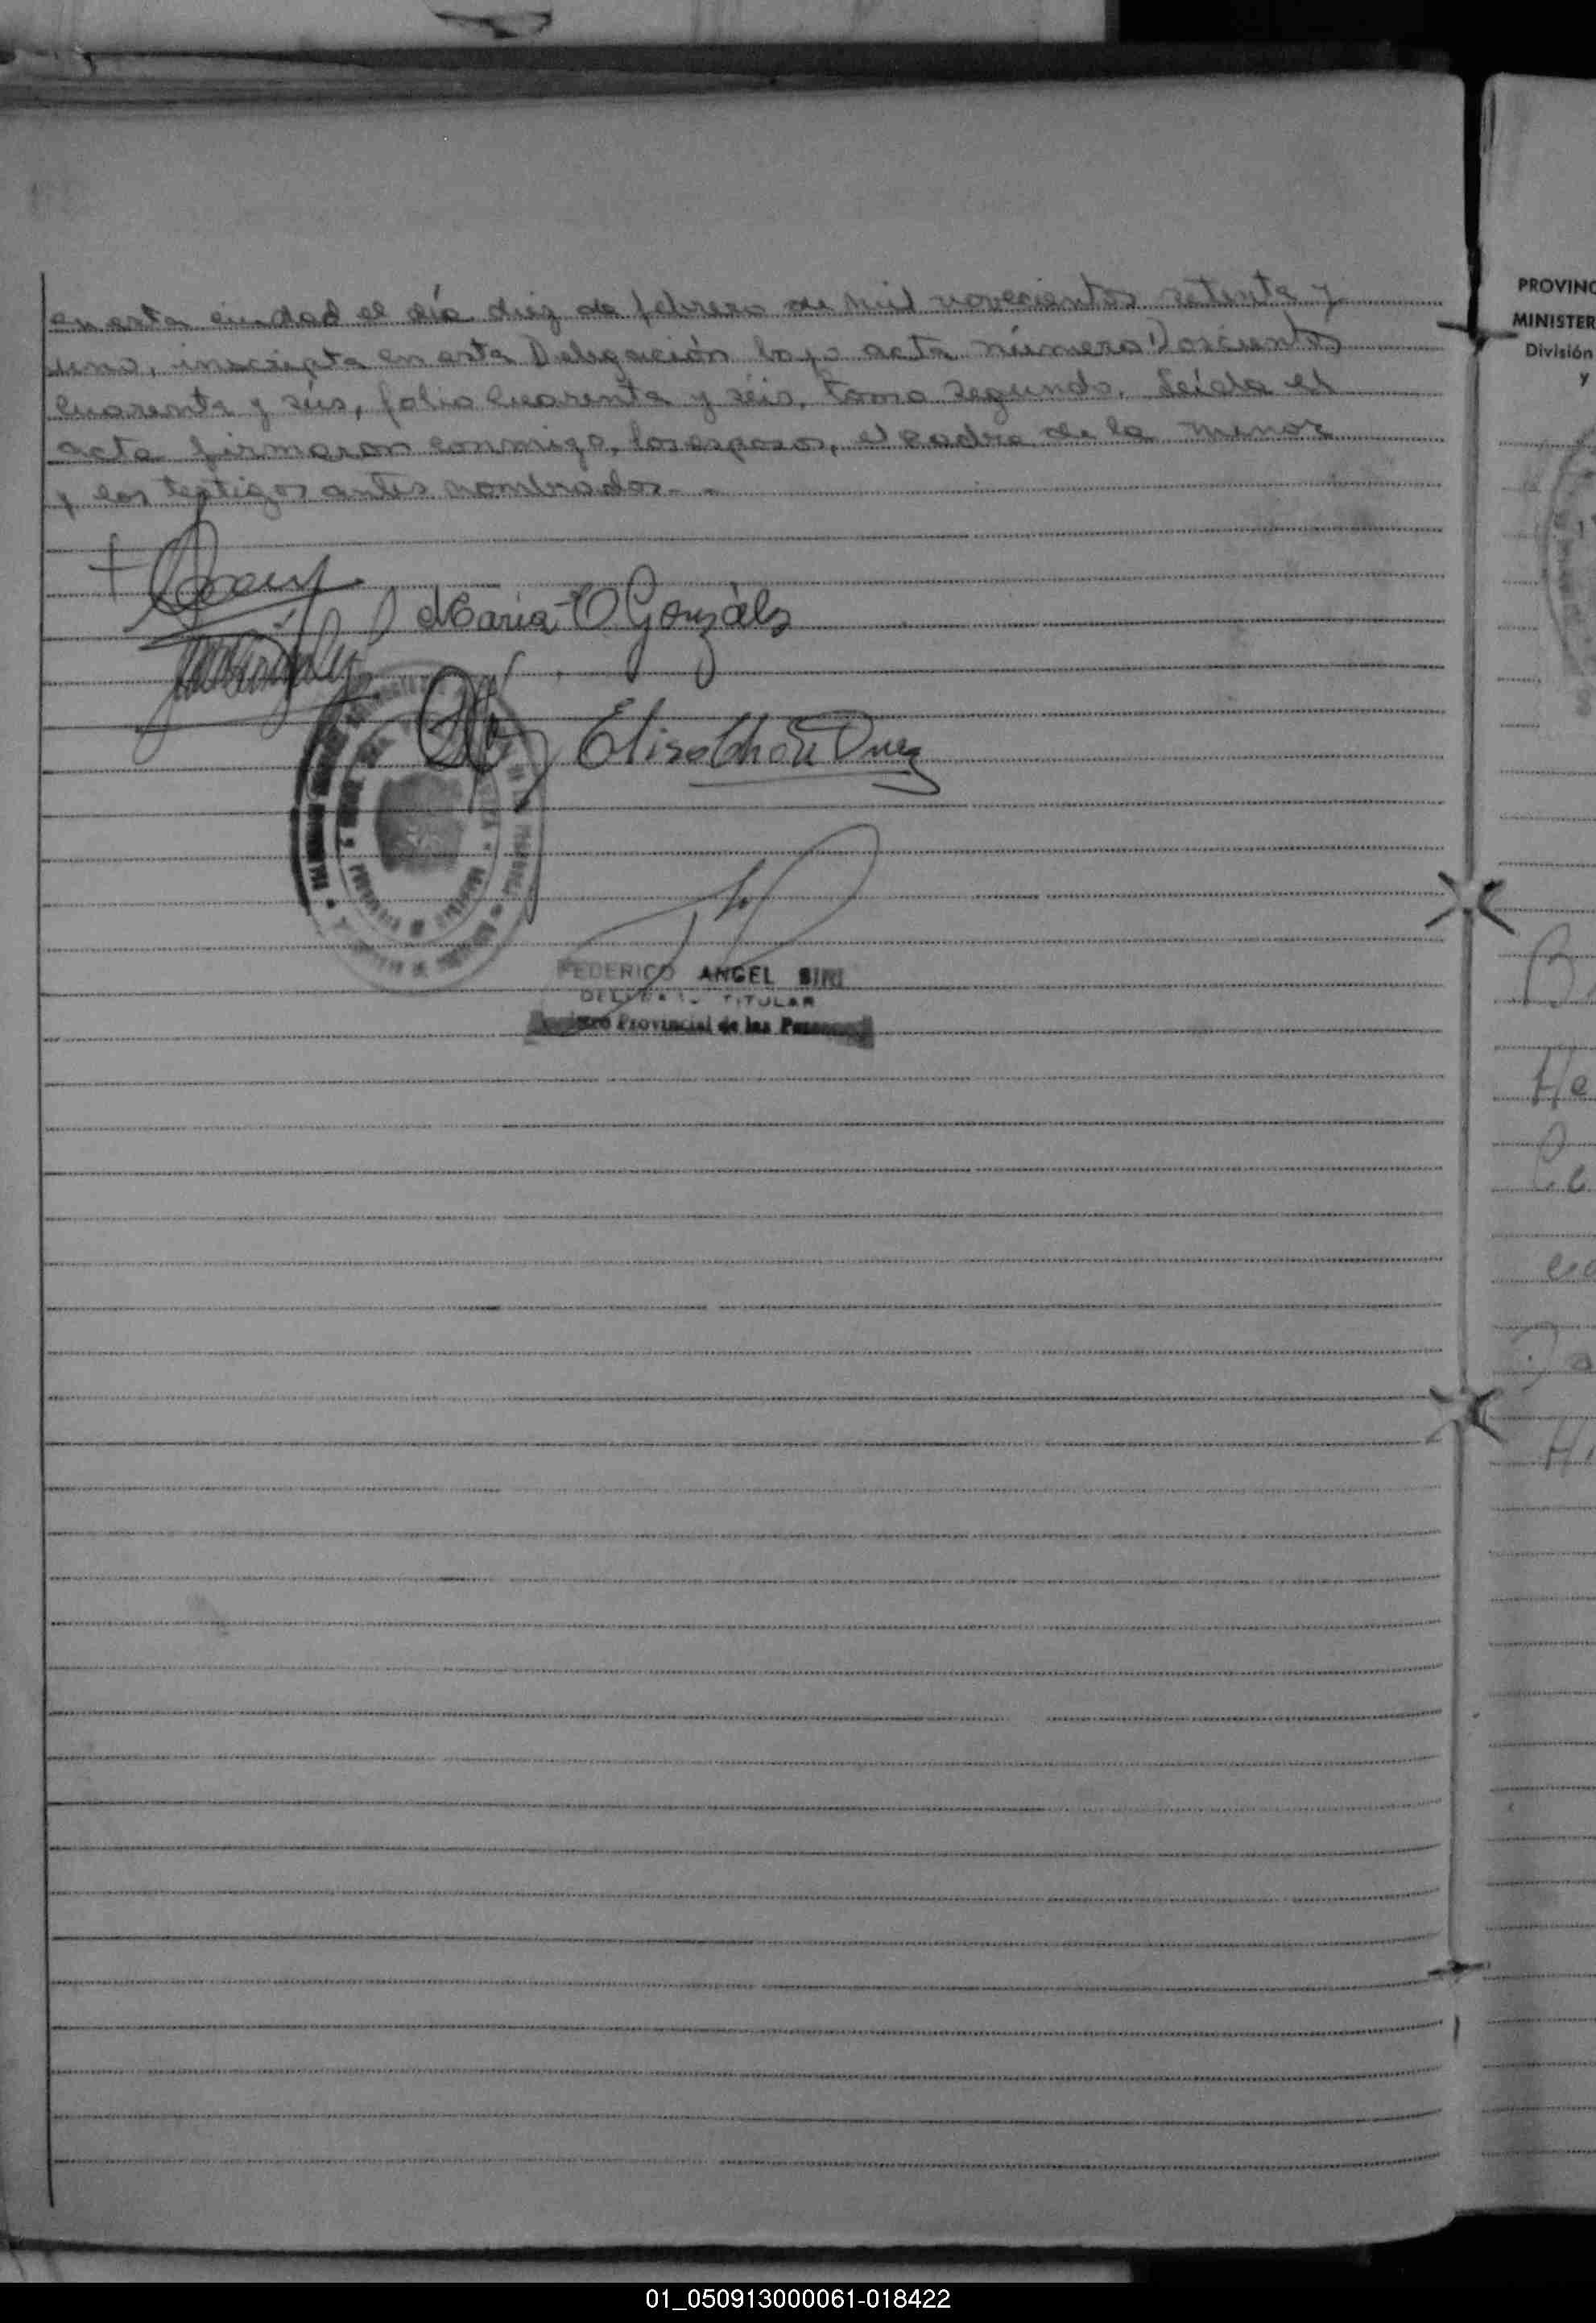 en esta ciudad el día diez de febrero de mil novecientos setenta y
uno, inscripta en esta Delegación bajo acta número Doscientos
cuarenta y seis, folio cuarenta y séis, tomo segundo. Leída el
acta firmaron conmigo, los esposos, el padre de la menor
y los testigos antes nombrados.-
María O Gonzáls
FEDERICO ANGEL SIRI
DELEGADO TITULAR
Registro Provincial de las Personas
PROVINC
MINISTER
División
y
He
01_050913000061-018422